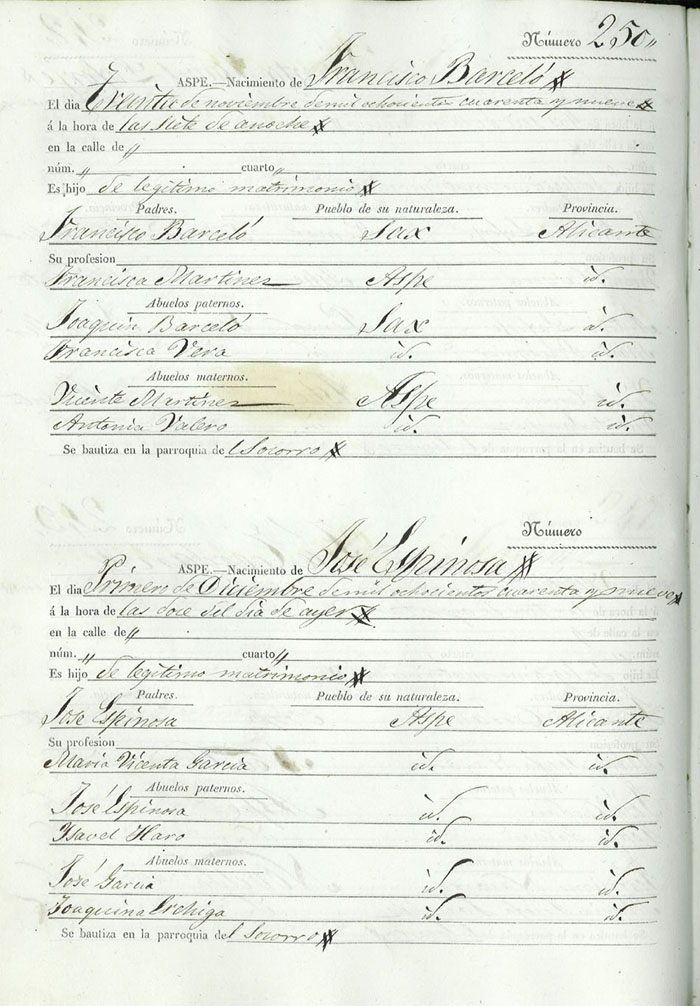 Número 250
ASPE.—Nacimiento de Francisco Barceló
El dia Treinta de noviembre de mil ochocientos cuarenta y nueve
á la hora de las siete de anoche
en la calle de "
núm. " cuarto "
Es hijo de legitimo matrimonio
Padres. Pueblo de su naturaleza. Provincia.
Francisco Barceló Sax Alicante
Su profesion
Francisca Martinez Aspe id.
Abuelos paternos.
Joaquin Barceló Sax id.
Francisca Vera id. id.
Abuelos maternos.
Vicente Martinez Aspe id.
Antonia Valero id. id.
Se bautiza en la parroquia del Socorro
Número
ASPE.—Nacimiento de José Espinosa
El dia Primero de Diciembre de mil ochocientos cuarenta y nueve
á la hora de las doce del dia de ayer
en la calle de "
núm. " cuarto "
Es hijo de legitimo matrimonio
Padres. Pueblo de su naturaleza. Provincia.
José Espinosa Aspe Alicante
Su profesion
Maria Vicenta Garcia id. id.
Abuelos paternos.
José Espinosa id. id.
Ysavel Haro id. id.
Abuelos maternos.
José Garcia id. id.
Joaquina id. id.
Se bautiza en la parroquia del Socorro